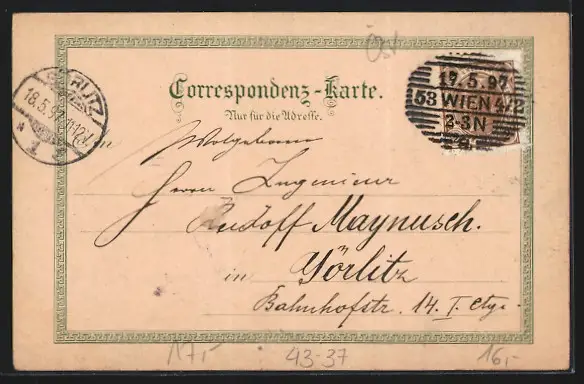 Öst
Correspondenz-Karte.
Nur für die Adresse.
GÖRLITZ
18.5.97
N
1
17.5.97
53 WIEN 4/2
2-3N
Wolgeboren
Herrn Ingenieur
Rudolf Maynusch.
in Görlitz
Bahnhofstr. 14. I. Etge
17,-
43-37
16,-